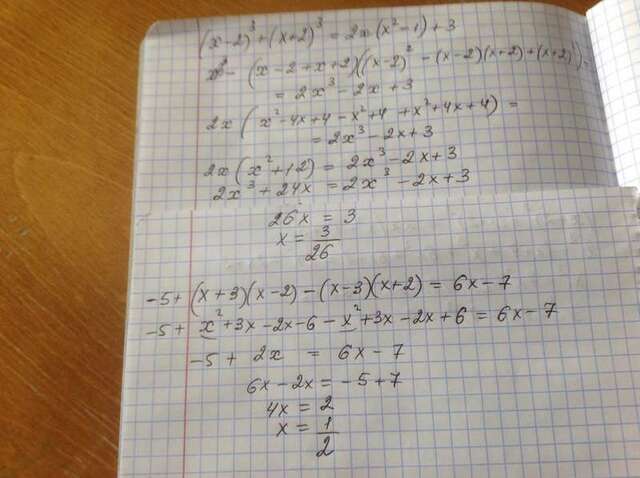 (x-2)³+(x+2)³ = 2x(x²-1)+3
(x-2+x+2)((x-2)² -(x-2)(x+2)+(x+2)²)=
= 2x³-2x+3
2x(x²-4x+4-x²+4+x²+4x+4) =
= 2x³-2x+3
2x(x²+12) = 2x³-2x+3
2x³+24x = 2x³-2x+3
26x = 3
x = 3/26
-5+(x+3)(x-2)-(x-3)(x+2) = 6x-7
-5+x²+3x-2x-6-x²+3x-2x+6 = 6x-7
-5+2x = 6x-7
6x-2x = -5+7
4x = 2
x = 1/2